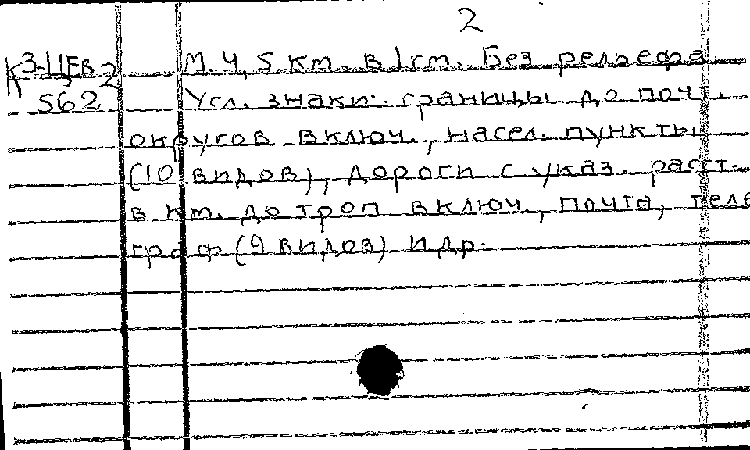 2
К 3-ЦЕв 2
562
М. 4,5 км. в 1 см. Без рельефа
Усл. знаки: границы до почт.
округов включ., насел. пункты
(10 видов), дороги с указ. расст.
в км. до троп включ., почта, теле
граф (9 видов) и др.